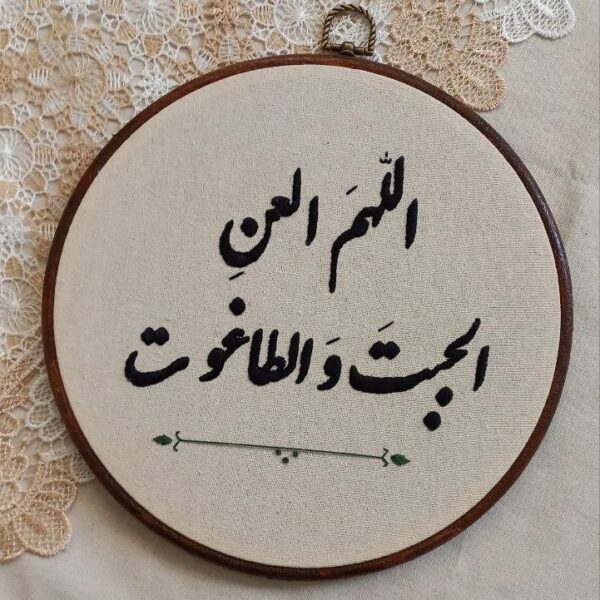 اللّهمَ العنِ
الجبتَ وَ الطاغوت